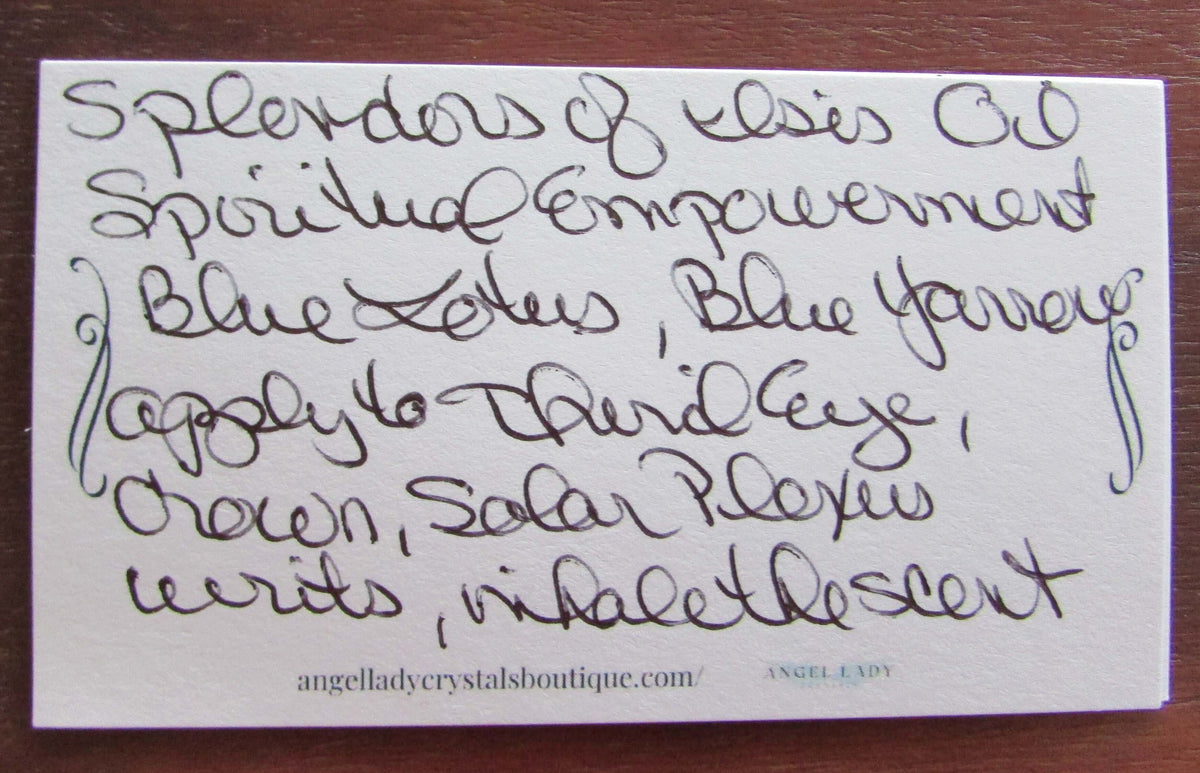 Splendors of Isis Oil
Spiritual Empowerment
Blue Lotus, Blue Yarrow
apply to Third Eye,
Crown, Solar Plexus
writs, inhale the scent
angelladycrystalsboutique.com/
ANGEL LADY